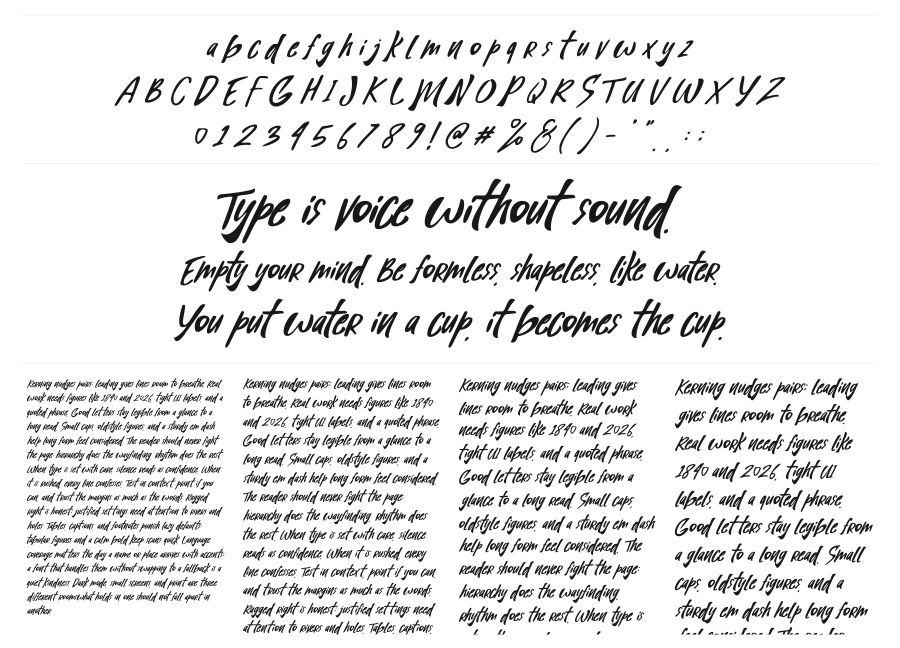 a b c d e f g h i j k l m n o p q r s t u v w x y z
A B C D E F G H I J K L M N O P Q R S T U V W X Y Z
0 1 2 3 4 5 6 7 8 9 ! @ # % & ( ) - ' " . , : ;
Type is voice without sound.
Empty your mind. Be formless, shapeless, like water.
You put water in a cup, it becomes the cup.
Kerning nudges pairs; leading gives lines room to breathe. Real
work needs figures like 1890 and 2026, tight UI labels, and a
quoted phrase. Good letters stay legible from a glance to a
long read. Small caps, oldstyle figures, and a sturdy em dash
help long form feel considered. The reader should never fight
the page; hierarchy does the wayfinding, rhythm does the rest.
When type is set with care, silence reads as confidence. When
it is rushed, every line confesses. Test in context, print if you
can, and trust the margins as much as the words. Ragged
right is honest; justified settings need attention to rivers and
holes. Tables, captions, and footnotes punish lazy defaults.
tabular figures and a calm bold keep scans quick. Language
coverage matters the day a name or place arrives with accents;
a font that handles them without swapping to a fallback is a
quiet kindness. Dark mode, small screens, and print are three
different rooms; what holds in one should not fall apart in
another.
Kerning nudges pairs; leading gives lines room
to breathe. Real work needs figures like 1890
and 2026, tight UI labels, and a quoted phrase.
Good letters stay legible from a glance to a
long read. Small caps, oldstyle figures, and a
sturdy em dash help long form feel considered.
The reader should never fight the page;
hierarchy does the wayfinding, rhythm does
the rest. When type is set with care, silence
reads as confidence. When it is rushed, every
line confesses. Test in context, print if you can,
and trust the margins as much as the words.
Ragged right is honest; justified settings need
attention to rivers and holes. Tables, captions,
Kerning nudges pairs; leading gives
lines room to breathe. Real work
needs figures like 1890 and 2026,
tight UI labels, and a quoted phrase.
Good letters stay legible from a
glance to a long read. Small caps,
oldstyle figures, and a sturdy em dash
help long form feel considered. The
reader should never fight the page;
hierarchy does the wayfinding,
rhythm does the rest. When type is
Kerning nudges pairs; leading
gives lines room to breathe.
Real work needs figures like
1890 and 2026, tight UI
labels, and a quoted phrase.
Good letters stay legible from
a glance to a long read. Small
caps, oldstyle figures, and a
sturdy em dash help long form